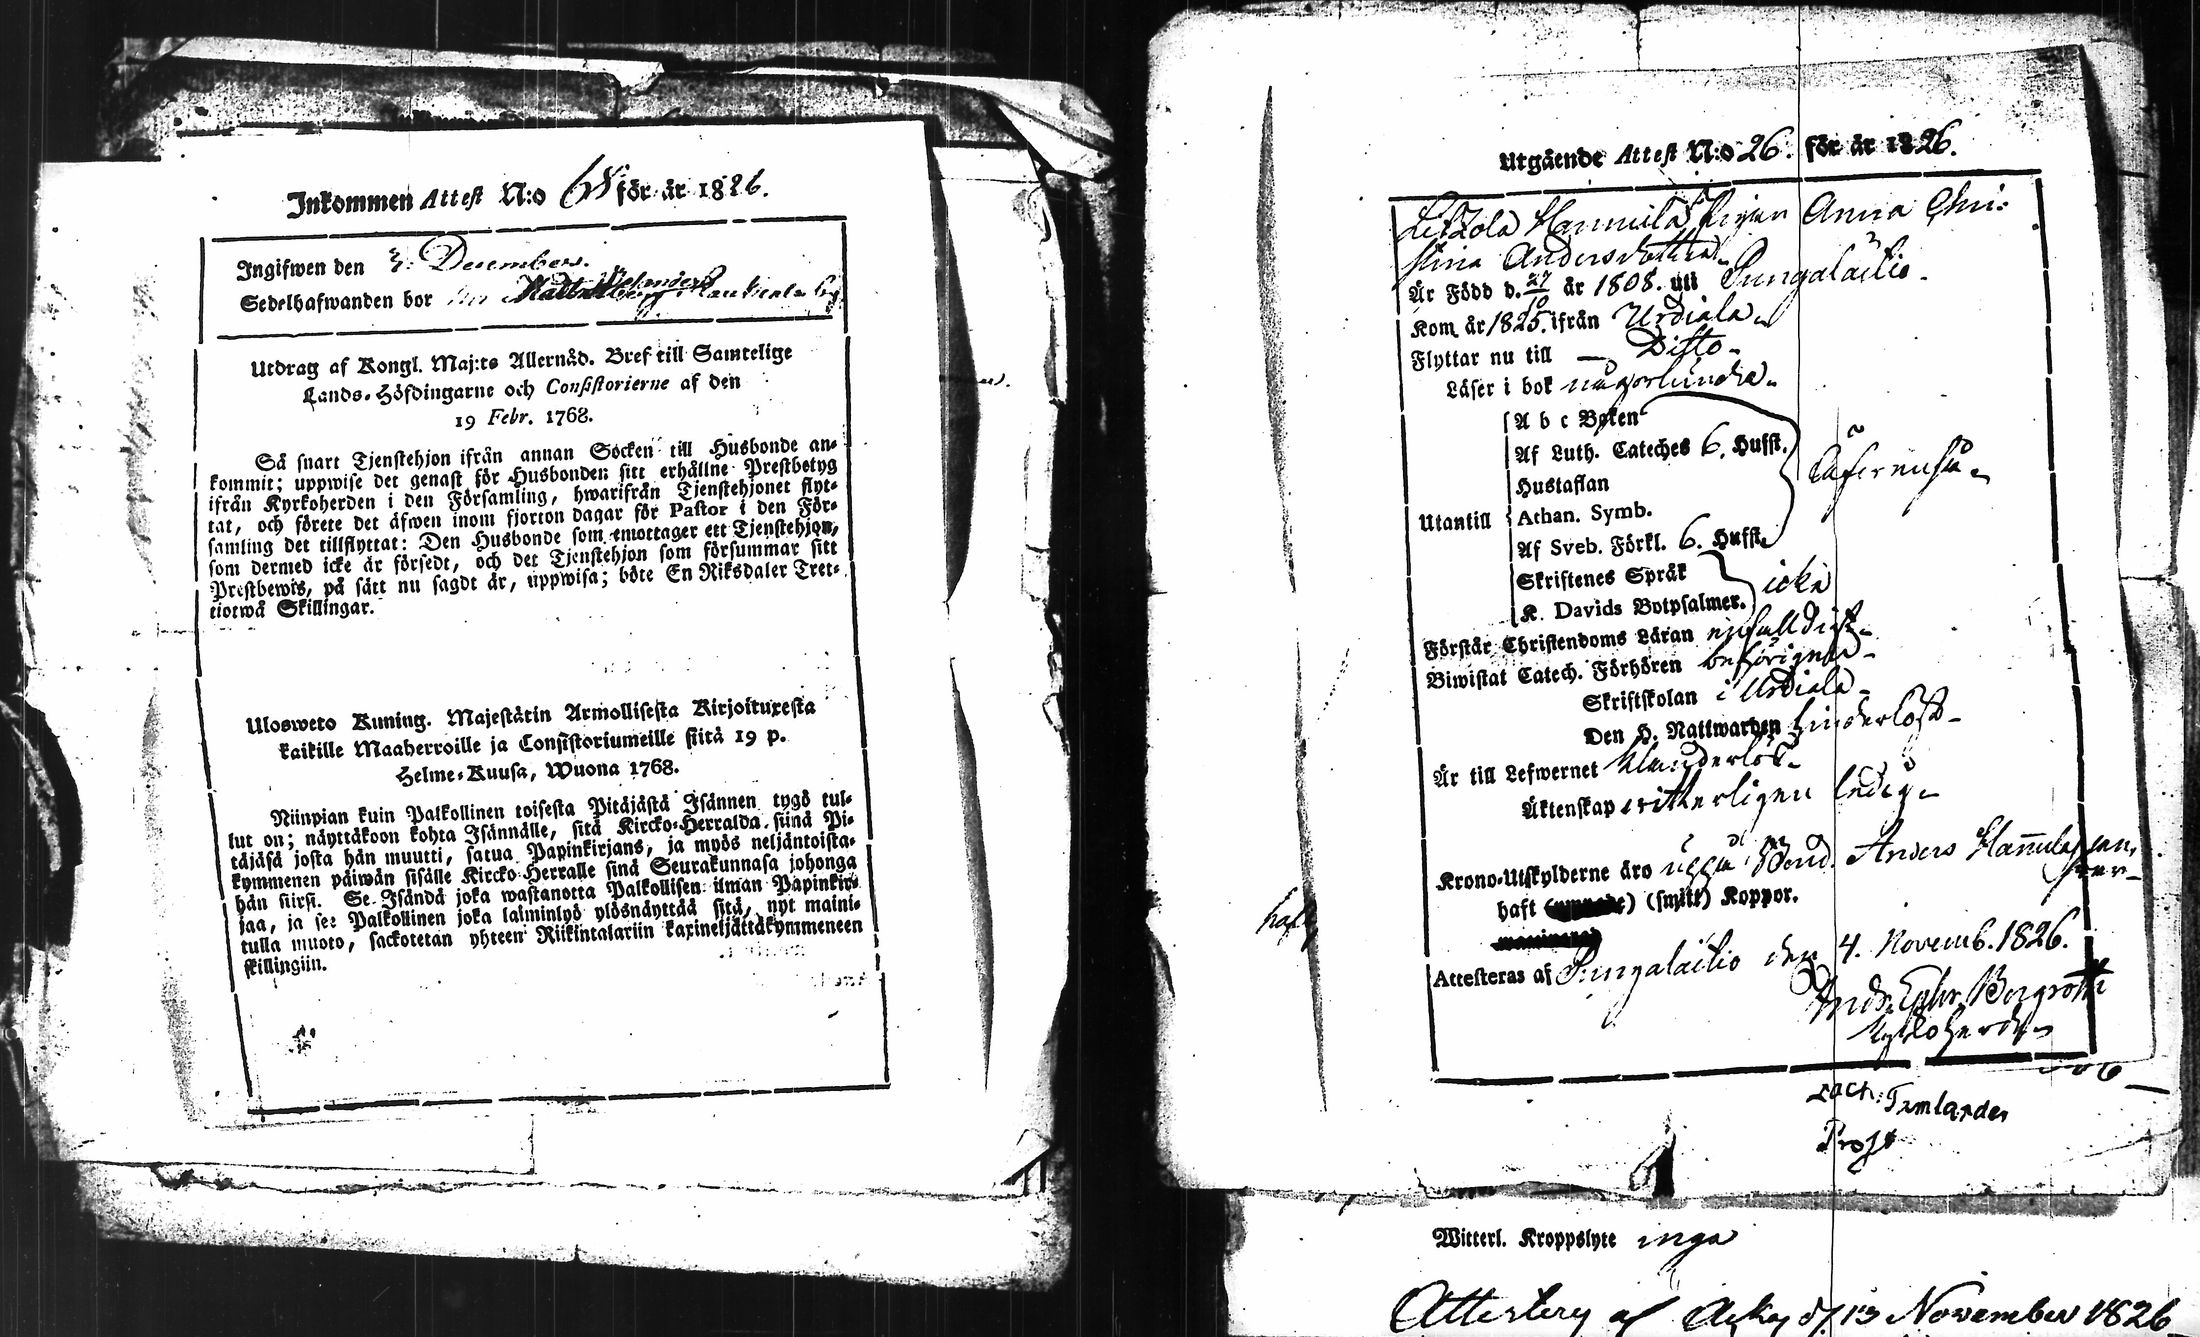 Inkommen Attest N:o 68 för år 1826.
Ingifwen den 3. December.
Sedelhafwanden bor
Utdrag af Kongl. Maj:ts Allernåd. Bref till Samtelige
Lands-Höfdingarne och Consistorierne af den
19 Febr. 1768.
Så snart Tjenstehjon ifrån annan Socken till Husbonde an-
kommit; uppwise det genast för Husbonden sitt erhållne Prestbetyg
ifrån Kyrkoherden i den Församling, hwarifrån Tjenstehjonet flyt-
tat, och förete det äfwen inom fjorton dagar för Pastor i den För-
samling det tillflyttat: Den Husbonde som emottager ett Tjenstehjon,
som dermed icke är försedt, och det Tjenstehjon som försummar sitt
Prestbewis, på sätt nu sagdt är, uppwisa; böte En Riksdaler Tret-
tiotwå Skillingar.
Ulosweto Kuning. Majestätin Armollisesta Kirjoituxesta
kaikille Maaherroille ja Consistoriumeille siitä 19 p.
Helme-Kuusa, Wuona 1768.
Niinpian kuin Palkollinen toisesta Pitäjästä Isännen tygö tul-
lut on; näyttäkoon kohta Isännälle, sitä Kircko-Herralda siinä Pi-
täjäsä josta hän muutti, saatua Papinkirjans, ja myös neljäntoista-
kymmenen päiwän sisälle Kircko-Herralle siinä Seurakunnasa johonga
hän siirsi. Se Isändä joka wastanotta Palkollisen ilman Papinkir-
jaa, ja se Palkollinen joka laiminlyö ylösnäyttää sitä, nyt maini-
tulla muoto, sackotetan yhteen Riikintalariin kaxineljättäkymmeneen
skillingiin.
Utgående Attest N:o 26. för år 1826.
Letzola Hannula Pigan Anna Chri-
stina Andersdotter
Är Född d. 27/10 år 1808. uti Pungalaitio
Kom år 1825. ifrån Urdiala
Flyttar nu till — Ditto
Läser i bok någorlunda
A b c Boken
Af Luth. Cateches 6. Hufst.
Hustaflan
Utantill Athan. Symb.
Af Sveb. Förkl. 6. Hufst.
Skriftenes Språk
icke
K. Davids Botpsalmer.
Förstår Christendoms Läran enfalldigt
Biwistat Catech. Förhören behörigen
Skriftskolan i Urdiala
Den H. Nattwarden hinderlöst
Är till Lefwernet klanderlös
Äktenskap witterligen ledig
Krono-Utskylderne äro Bond. Anders Hannula
haft (smitt) Koppor.
haft
Attesteras af Pungalaitio den 4. Novemb. 1826.
Andr. Ephr. Bergroth
Kyrkoherde
Zach: Tamlander
Prost
Witterl. Kroppslyte inga
November 1826